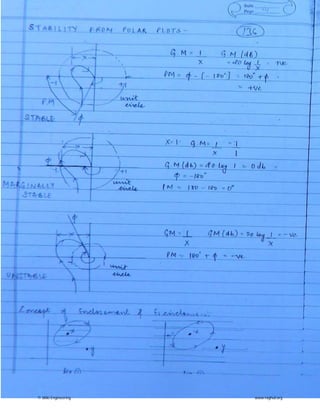 Date
Page
STABILITY FROM POLAR PLOTS -
136
G.M = 1/x
G.M (dB) = 20 log 1/x = +ve
PM = φ - [-180°] = 180° + φ = +ve
x
+1
unit circle
PM
φ
STABLE
x=1. G.M = 1/x = 1/1
G.M (db) = 20 log 1 = 0 db
φ = -180°
PM = 180 - 180 = 0°
x
φ
+1
unit circle
MARGINALLY STABLE
φ
GM = 1/x GM (db) = 20 log 1/x = -ve
PM = 180° + φ = -ve
x
unit circle
UNSTABLE
Concept of Enclosement & Encirclement :-
x
y
x
y
© SBG Engineering
www.raghul.org